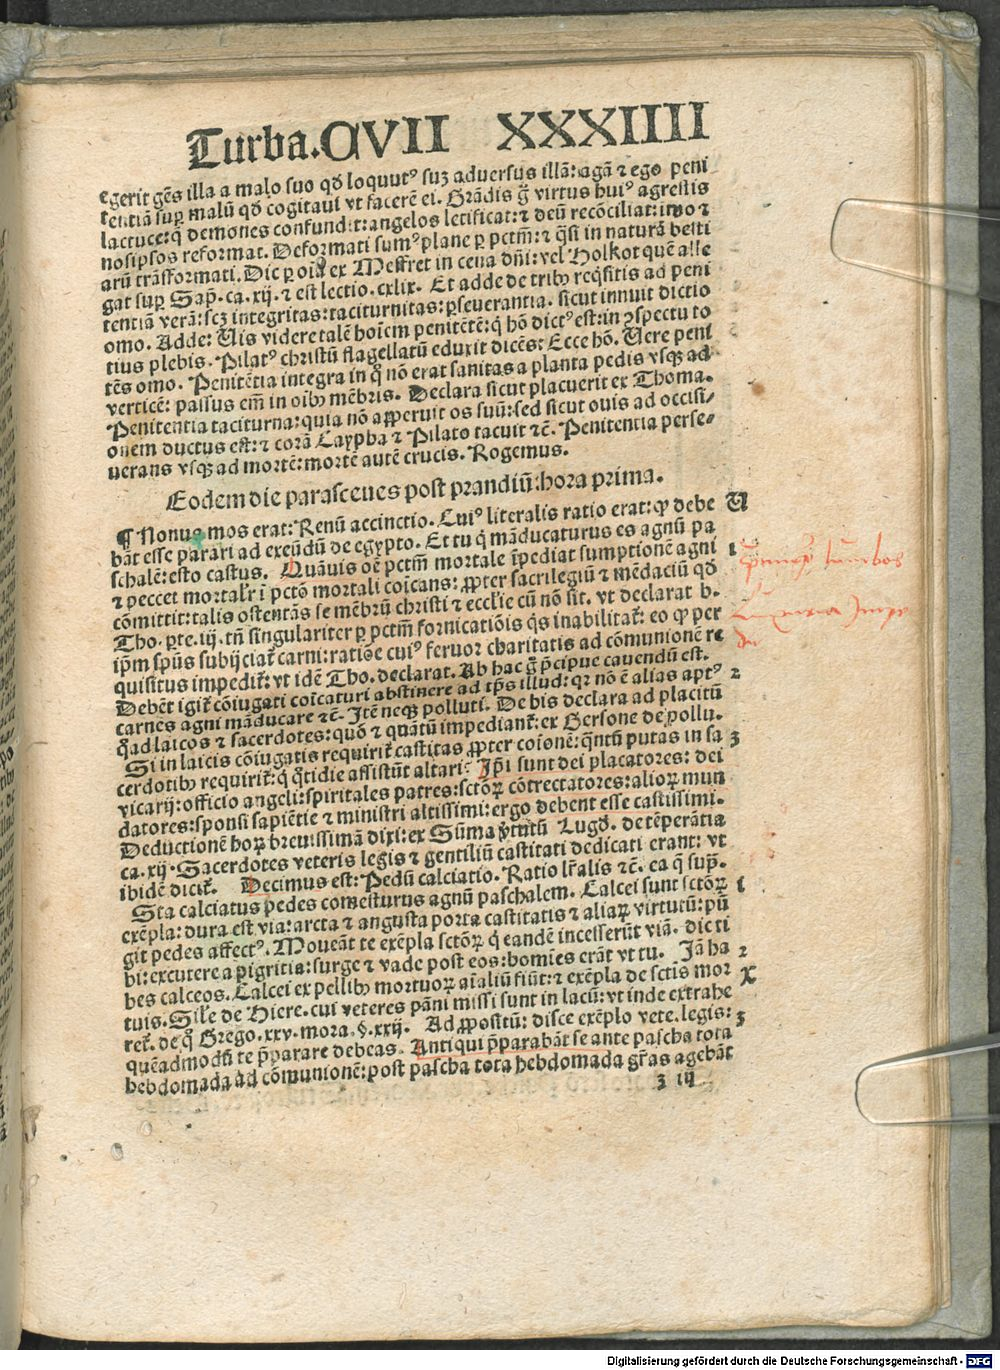 Turba. CVII XXXIIII
egerit gẽs illa a malo suo qđ loquut⁹ suꝫ adversus illã: agã ⁊ ego peni
tentiã suꝑ malũ qđ cogitaui vt facerẽ ei. Grãdis g̃ virtus hui⁹ agrestis
lactuce: q̃ demones confundit: angelos letificat: ⁊ deũ recõciliat: imo ⁊
nosipsos reformat. Deformati sum⁹ plane ꝑ pctm̃: ⁊ q̃si in naturã besti
arũ trãsformati. Dic ꝑ oĩa ex Meffret in cena dñi: vel Holkot quẽ alle
gat suꝑ Sap̃. ca. xij. ⁊ est lectio. cxlix. Et adde de tribꝰ reqͥsitis ad peni
tentiã verã: scꝫ integritas: taciturnitas: ꝑseuerantia. sicut innuit dictio
omo. Adde: Uis videre talẽ hoĩem penitẽtẽ: q̃ hõ dict⁹ est: in ꝯspectu to
tius plebis. Pilat⁹ christũ flagellatũ eduxit dicẽs: Ecce hõ. Uere peni
tẽs omo. Penitẽtia integra in q̃ nõ erat sanitas a planta pedis vsqꝫ ad
verticẽ: passus em̃ in oibꝰ mẽbris. Declara sicut placuerit ex Thoma.
Penitentia taciturna: quia nõ aꝑperuit os suũ: sed sicut ouis ad occisi-
onem ductus est: ⁊ corã Caypha ⁊ Pilato tacuit ⁊c̃. Penitentia perse-
uerans vsqꝫ ad mortẽ: mortẽ autẽ crucis. Rogemus.
Eodem die parasceues post prandiũ: hora prima.
¶ Nonus mos erat: Renũ accinctio. Cui⁹ literalis ratio erat: qꝙ debe U
bãt esse parari ad exeũdũ de egypto. Et tu q̃ mãducaturus es agnũ pa
schalẽ: esto castus. Quãuis oẽ pctm̃ mortale ĩpediat sumptionẽ agni 1
⁊ peccet mortalr̃ ĩ pctõ mortali coĩcans: ꝓpter sacrilegiũ ⁊ mẽdaciũ qđ
cõmittit: talis ostentãs se mẽbrũ christi ⁊ ecclie cũ nõ sit. vt declarat b.
Tho. ꝑte. iij. tñ singulariter ꝑ pctm̃ fornicatiõis qͥs inabilitat: eo ꝙ per
ip̃m spũs subijciat̃ carni: ratiõe cui⁹ feruor charitatis ad cõmunionẽ re
quisitus impedit̃: vt idẽ Tho. declarat. Ab hac g̃ p̃cipue cauendũ est.
Debẽt igit̃ cõiugati coĩcaturi abstinere ad tp̃s illud: qꝛ nõ ẽ alias apt⁹ 2
carnes agni mãducare ⁊c̃. Itẽ neqꝫ polluti. De his declara ad placitũ
q̃ad laicos ⁊ sacerdotes: quõ ⁊ quãtũ impediant̃: ex Gersone de pollu.
Si in laicis cõiugatis requirit̃ castitas ꝓpter coĩonẽ: qñtũ putas in sa 3
cerdotibꝰ requirit̃: q̃ qͦtidie assistũt altari: Ip̃i sunt dei placatores: dei
vicarij: officio angeli: spiritales patres: sctõꝝ cõtrectatores: alioꝝ mun
datores: sponsi sapiẽtie ⁊ ministri altissimi: ergo debent esse castissimi.
Deductionẽ hoꝝ breuissimã dixi: ex Sũma p̃tutũ Lugđ. de tẽperãtia
ca. xij. Sacerdotes veteris legis ⁊ gentiliũ castitati dedicati erant: vt
ibidẽ dicit̃. Decimus est: Pedũ calciatio. Ratio lr̃alis ⁊c̃. ca q̃ sup̃.
Sta calciatus pedes comesturus agnũ paschalem. Calcei sunt sctõꝝ 1
exẽpla: dura est via: arcta ⁊ angusta porta castitatis ⁊ aliaꝝ virtutũ: pũ
git pedes affect⁹. Moueãt te exẽpla sctõꝝ q̃ eandẽ incesserũt viã. dic ti
bi: excutere a pigritia: surge ⁊ vade post eos: homies erãt vt tu. Iã ha 2
bes calceos. Calcei ex pellibꝰ mortuoꝝ aĩaliũ fiũt: ⁊ exẽpla de sctis mor X
tuis. Silr̃ de Hiere. cui veteres pãni missi sunt in lacũ: vt inde extrahe
ret̃. de q̃ Grego. xxv. mora. §. xxij. Ad ꝓpositũ: disce exẽplo vete. legis: 3
quẽadmodũ te p̃parare debeas. Antiqui p̃parabãt se ante pascha tota
hebdomada ad cõmunionẽ: post pascha tota hebdomada gr̃as agebãt
z iij
Digitalisierung gefördert durch die Deutsche Forschungsgemeinschaft - DFG